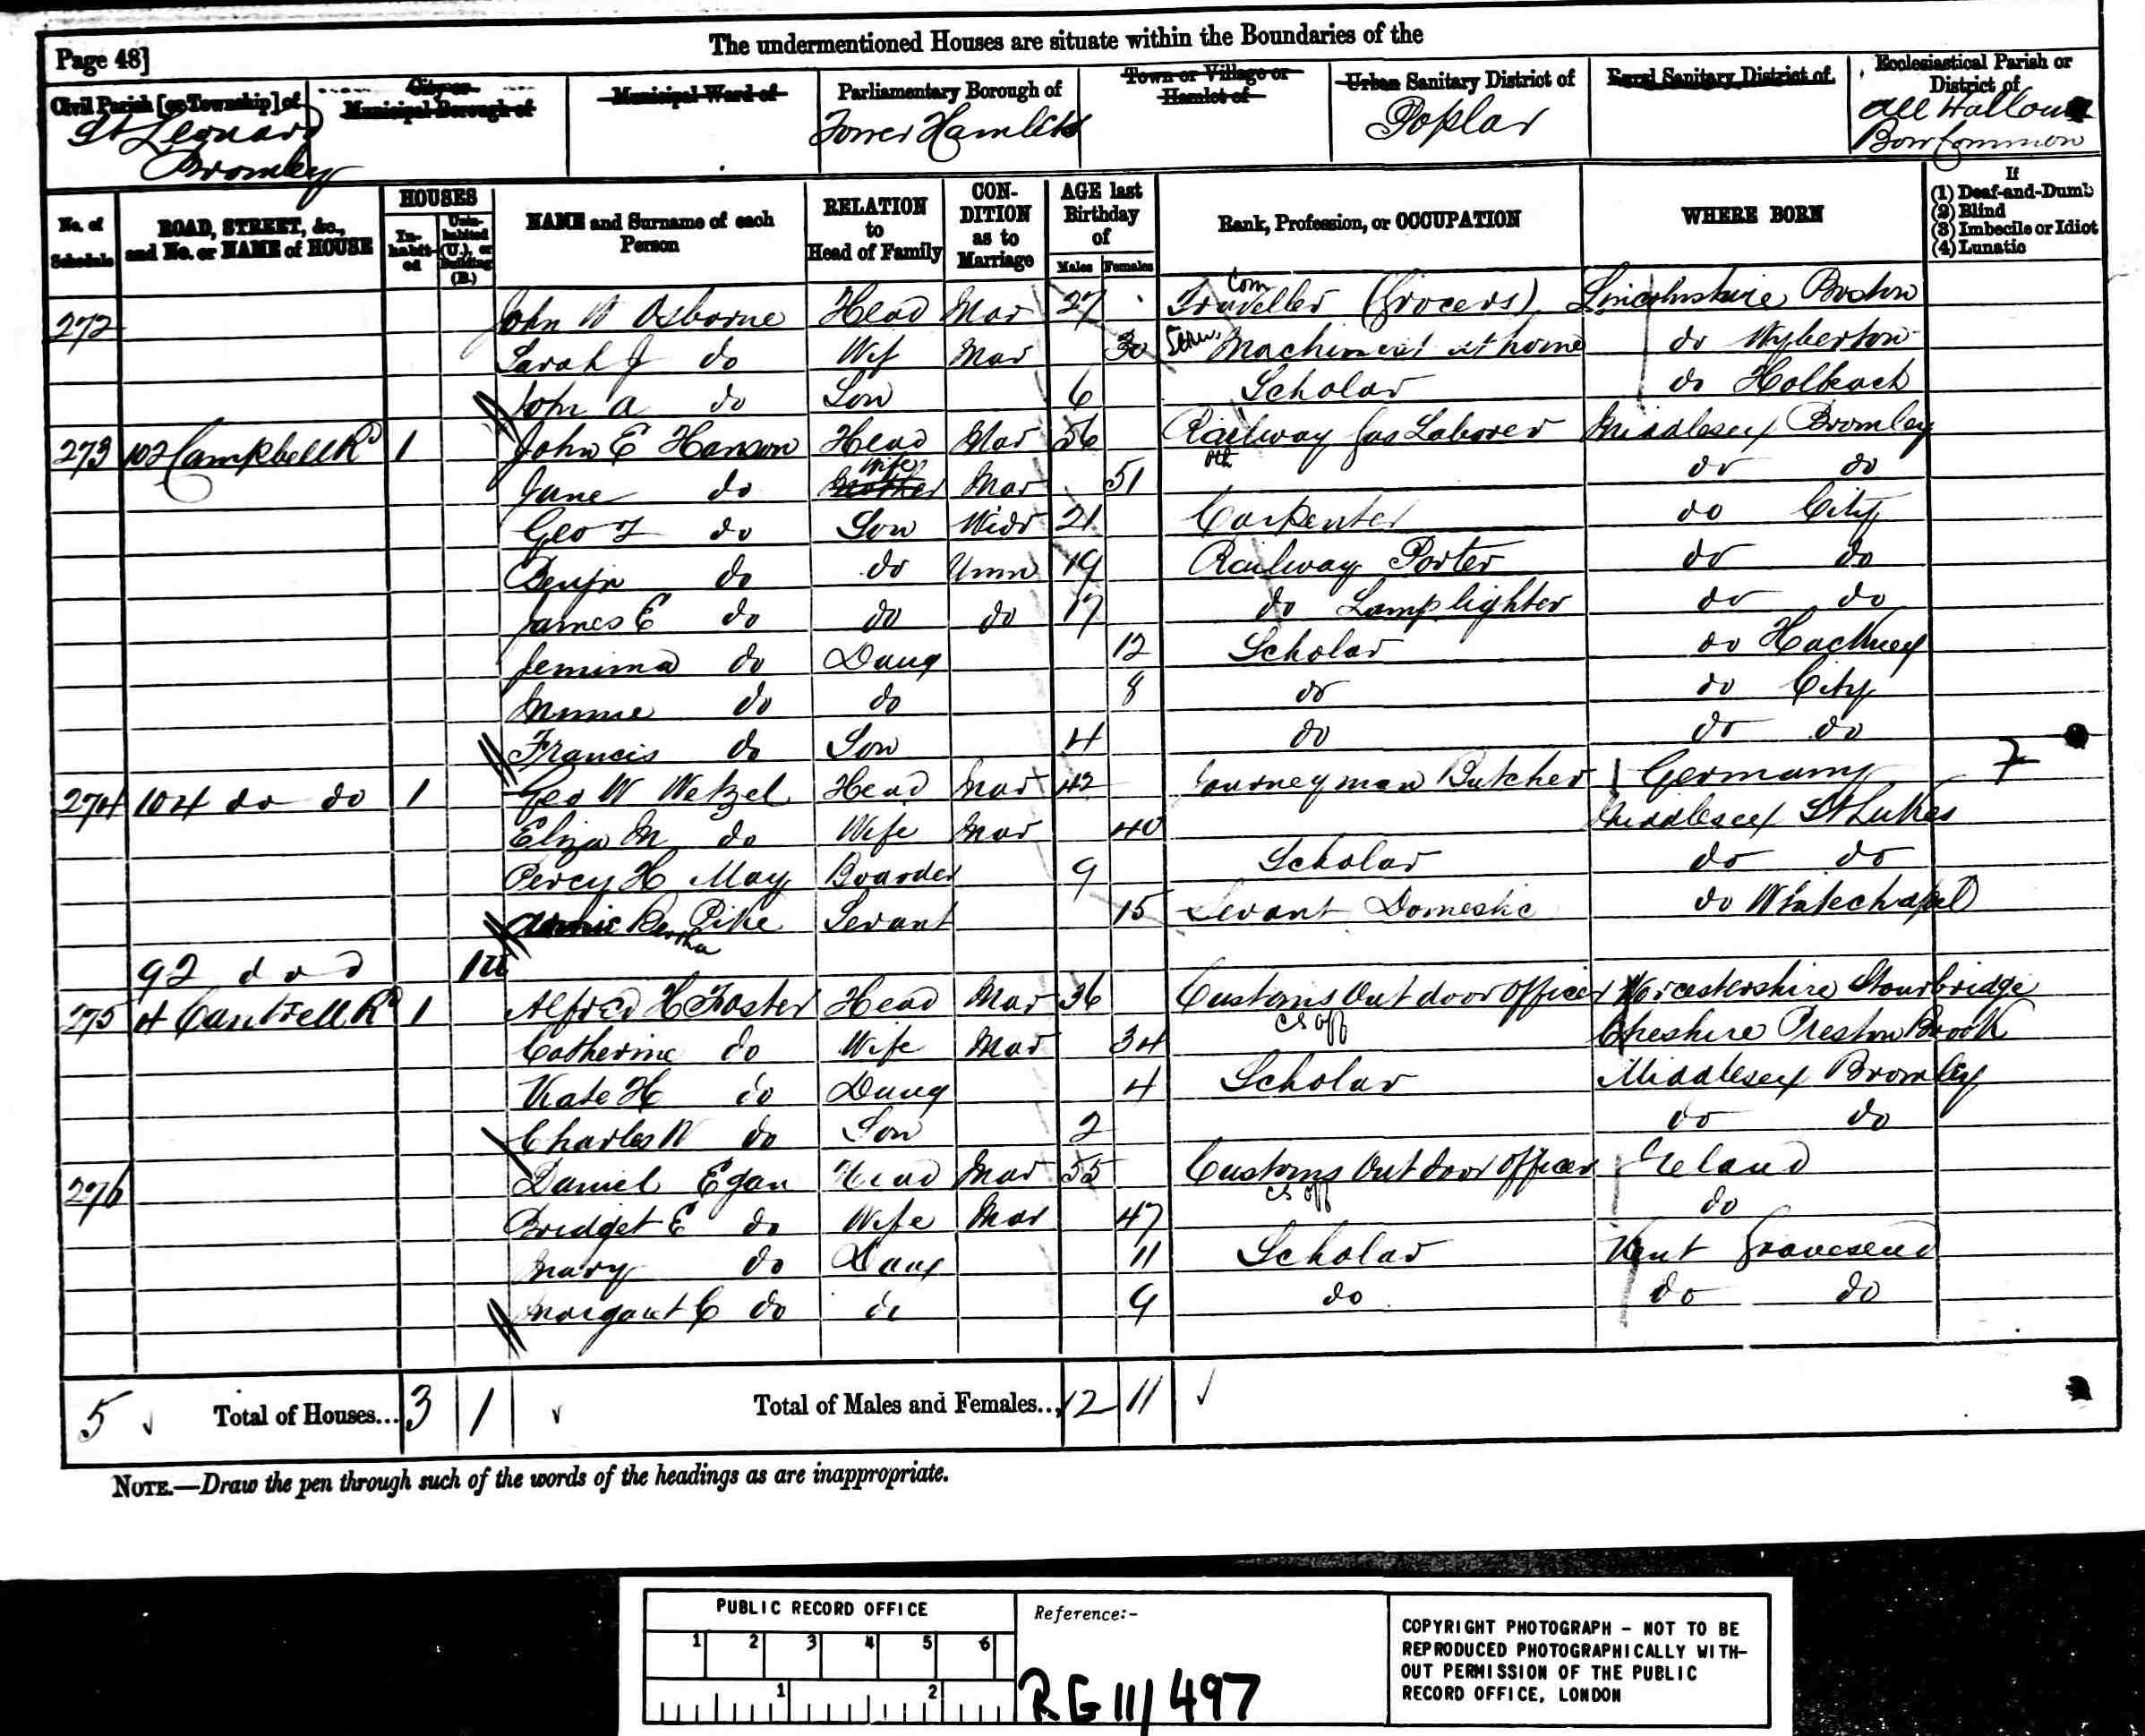 Page 48]
The undermentioned Houses are situate within the Boundaries of the
Civil Parish [or Township] of
St Leonard
Bromley
City or
Municipal Borough of
Municipal Ward of
Parliamentary Borough of
Tower Hamlets
Town or Village or
Hamlet of
Urban Sanitary District of
Poplar
Rural Sanitary District of
Ecclesiastical Parish or
District of
All Hallows
Bow Common
No. of Schedule
ROAD, STREET, &c., and No. or NAME of HOUSE
HOUSES
In-habit-ed
Unin-habited (U.), or Building (B.)
NAME and Surname of each Person
RELATION to Head of Family
CON-DITION as to Marriage
AGE last Birthday of
Males Females
Rank, Profession, or OCCUPATION
WHERE BORN
If
(1) Deaf-and-Dumb
(2) Blind
(3) Imbecile or Idiot
(4) Lunatic
272 John W Osborne Head Mar 27 Com Traveller (Grocers) Lincolnshire Boston
Sarah J do Wif Mar 30 Machinist at home do Wyberton
John A do Son 6 Scholar do Holbeach
273 102 Campbell Rd 1 John E Hanson Head Mar 56 Railway Gas Laborer Middlesex Bromley
Jane do Wife Mar 51 do do
Geo T do Son Widr 21 Carpenter do City
Benjn do do Unm 19 Railway Porter do do
James E do do do 17 do Lamplighter do do
Jemima do Daug 12 Scholar do Hackney
Minnie do do 8 do do City
Francis do Son 4 do do do
274 104 do do 1 Geo W Wetzel Head Mar 42 Journeyman Butcher Germany
Eliza M do Wife Mar 40 Middlesex St Lukes
Percy H May Boarder 9 Scholar do do
Annie Bertha Pike Servant 15 Servant Domestic do Whitechapel
92 do d 1u
275 4 Cantrell Rd 1 Alfred H Foster Head Mar 36 Customs Out door Officer Worcestershire Stourbridge
CS Off
Catherine do Wife Mar 34 Cheshire Preston Brook
Kate H do Daug 4 Scholar Middlesex Bromley
Charles W do Son 2 do do
276 Daniel Egan Head Mar 55 Customs Out door Officer Ireland
CS Off
Bridget E do Wife Mar 47 do
Mary do Daug 11 Scholar Kent Gravesend
Margaret C do do 9 do do do
5 Total of Houses... 3 1 Total of Males and Females... 12 11
NOTE.—Draw the pen through such of the words of the headings as are inappropriate.
PUBLIC RECORD OFFICE
1 2 3 4 5 6
1 2
Reference:-
RG 11/497
COPYRIGHT PHOTOGRAPH – NOT TO BE
REPRODUCED PHOTOGRAPHICALLY WITH-
OUT PERMISSION OF THE PUBLIC
RECORD OFFICE, LONDON